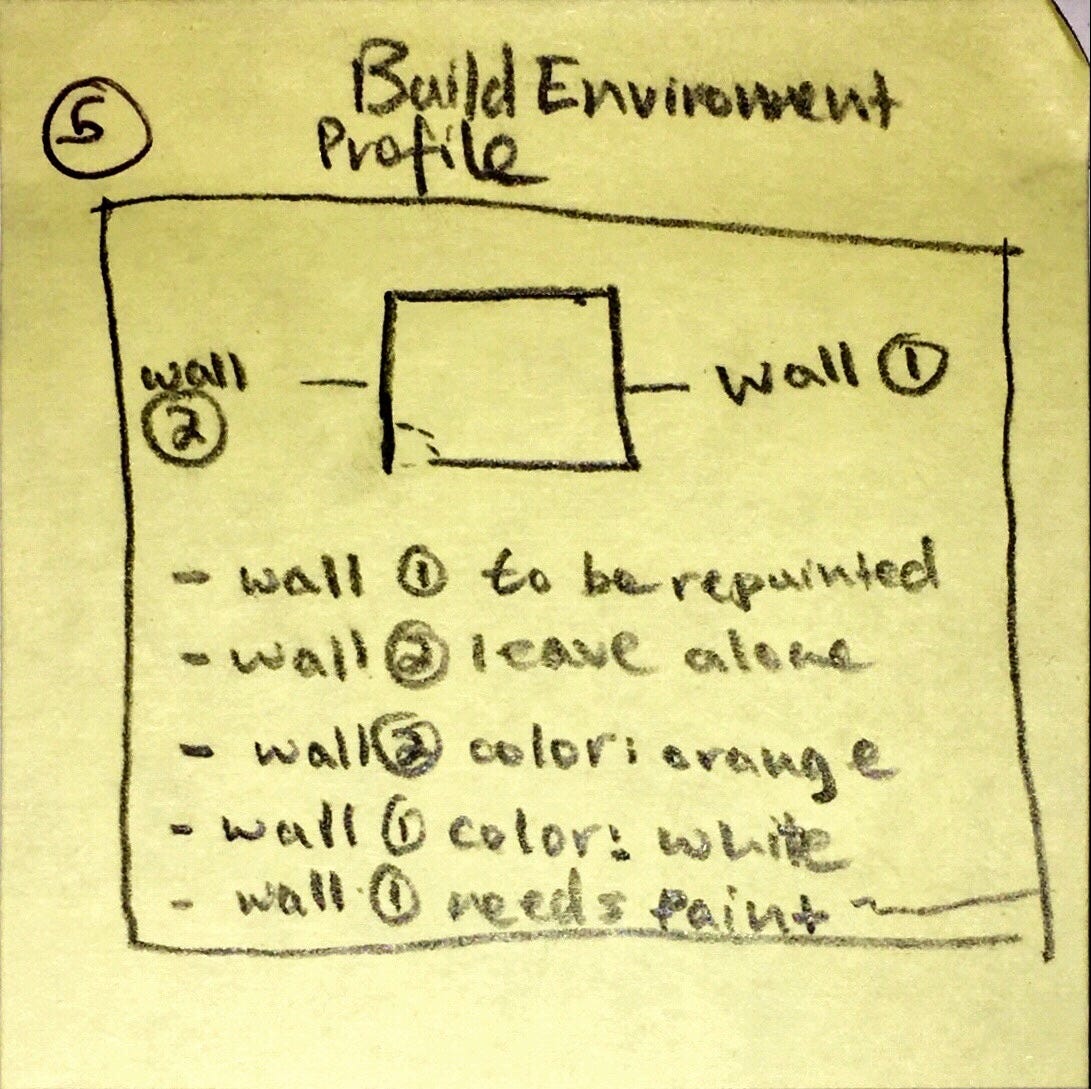 5
Build Enviroment
Profile
wall
2
wall 1
- wall 1 to be repainted
- wall 2 leave alone
- wall 2 color: orange
- wall 1 color: white
- wall 1 needs paint